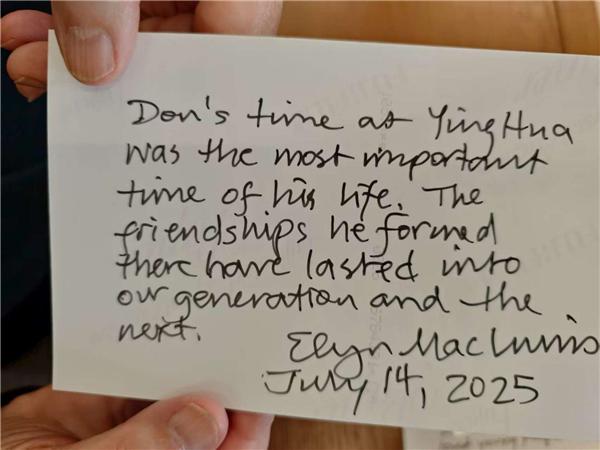 Don's time at YingHua
was the most important
time of his life. The
friendships he formed
there have lasted into
our generation and the
next.
Elyn MacInnis
July 14, 2025